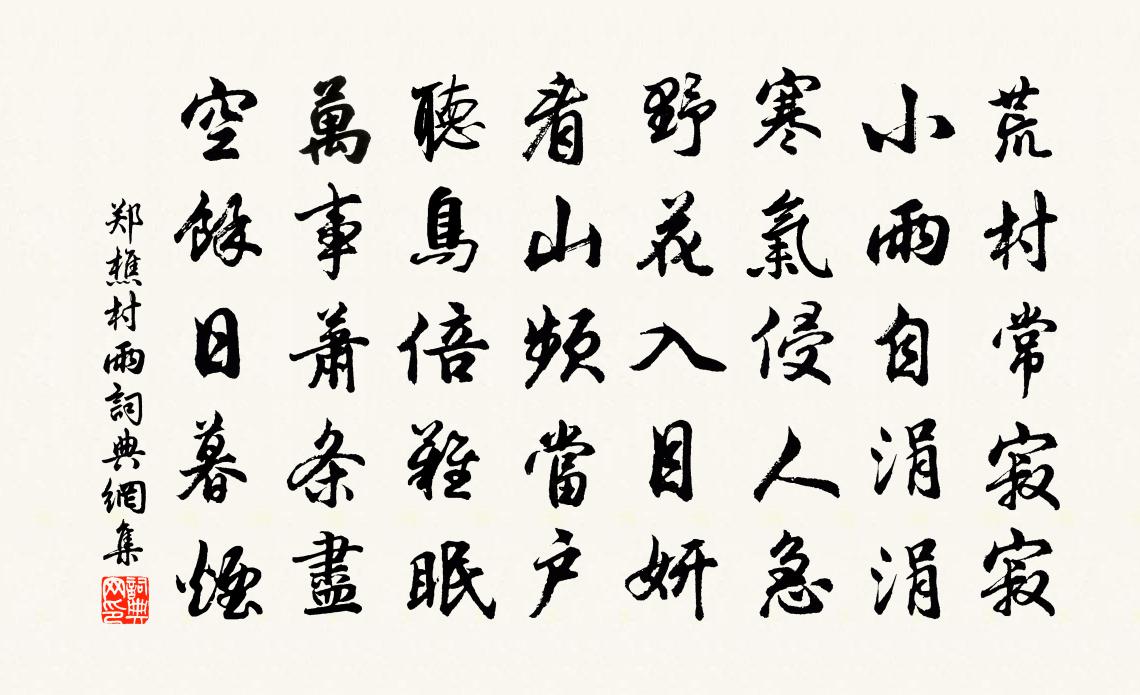 荒村常寂寂
小雨自涓涓
寒氣侵人急
野花入目妍
看山頻當户
聽鳥倍難眠
萬事蕭条盡
空餘日暮煙
郑樵村雨詞典網集
詞典網印